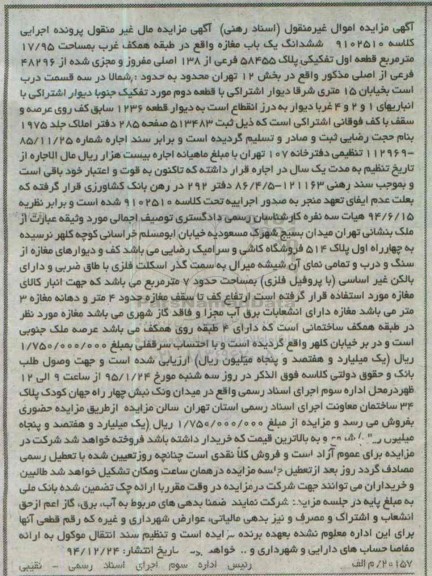 آگهی مزایده اموال غیرمنقول (اسناد رهنی) آگهی مزایده مال غیر منقول پرونده اجرایی
کلاسه ۹۱۰۲۵۱۰ ششدانگ یک باب مغازه واقع در طبقه همکف غرب بمساحت ۱۷/۹۵
مترمربع قطعه اول تفکیکی پلاک ۵۸۴۵۵ فرعی از ۱۳۸ اصلی مفروز و مجزی شده از ۴۸۲۹۶
فرعی از اصلی مذکور واقع در بخش ۱۲ تهران محدود به حدود : شمالا در سه قسمت درب
است بخیابان ۱۵ متری شرقا دیوار اشتراکی با قطعه دوم مورد تفکیک جنوبا دیوار اشتراکی با
انباریهای ۱ و ۲ و ۴ غربا دیوار به درز انقطاع است به دیوار قطعه ۱۲۳۶ سابق کف روی عرصه و
سقف با کف فوقانی اشتراکی است که ذیل ثبت ۵۱۳۴۸۳ صفحه ۲۸۵ دفتر املاک جلد ۱۹۷۵
بنام حجت رضایی ثبت و صادر و تسلیم گردیده است و برابر سند اجاره شماره ۸۵/۱۱/۲۵
-۱۱۲۹۶۹ تنظیمی دفترخانه ۱۰۷ تهران با مبلغ ماهیانه اجاره بیست هزار ریال مال الاجاره از
تاریخ تنظیم به مدت یک سال در اجاره قرار داشته که تاکنون به قوت و اعتبار خود باقی است
و بموجب سند رهنی ۱۲۱۱۶۳-۸۶/۴/۵ دفتر ۲۹۲ در رهن بانک کشاورزی قرار گرفته که
بعلت عدم ایفای تعهد منجر به صدور اجراییه تحت کلاسه ۹۱۰۲۵۱۰ شده است و برابر نظریه
۹۴/۶/۱۵ هیات سه نفره کارشناسان رسمی دادگستری توصیف اجمالی مورد وثیقه عبارت از
ملک بنشانی تهران میدان بسیج شهرک مسعودیه خیابان ابومسلم خراسانی کوچه کلهر نرسیده
به چهارراه اول پلاک ۵۱۴ فروشگاه کاشی و سرامیک رضایی می باشد کف و دیوارهای مغازه از
سنگ و درب و تمامی نمای آن شیشه میرال به سمت گذر اسکلت فلزی با طاق ضربی و دارای
بالکن غیر اساسی (با پروفیل فلزی) بمساحت حدود ۷ مترمربع می باشد که جهت انبار کالای
مغازه مورد استفاده قرار گرفته است ارتفاع کف تا سقف مغازه حدود ۴ متر و دهانه مغازه ۳
متر می باشد مغازه دارای انشعابات برق آب مجزا و فاقد گاز شهری می باشد مغازه مورد نظر
در طبقه همکف ساختمانی است که دارای ۴ طبقه روی همکف می باشد عرصه ملک جنوبی
است و در بر خیابان کلهر واقع گردیده است و با احتساب سرقفلی بمبلغ ۱/۷۵۰/۰۰۰/۰۰۰
ریال (یک میلیارد و هفتصد و پنجاه میلیون ریال) ارزیابی شده است و جهت وصول طلب
بانک و حقوق دولتی کلاسه فوق الذکر در روز سه شنبه مورخ ۹۵/۱/۲۴ از ساعت ۹ الی ۱۲
ظهردرمحل اداره سوم اجرای اسناد رسمی واقع در میدان ونک نبش چهار راه جهان کودک پلاک
۳۴ ساختمان معاونت اجرای اسناد رسمی استان تهران سالن مزایده ازطریق مزایده حضوری
بفروش می رسد و مزایده از مبلغ ۱/۷۵۰/۰۰۰/۰۰۰ ریال (یک میلیارد و هفتصد و پنجاه
میلیون و به بالاترین قیمت که خریدار داشته باشد فروخته خواهد شد شرکت در
مزایده برای عموم آزاد است و فروش کلا نقدی است چنانچه روزتعیین شده با تعطیل رسمی
مصادف گردد روز بعد ازتعطیل جلسه مزایده درهمان ساعت ومکان تشکیل خواهد شد طالبین
و خریداران می توانند جهت شرکت درمزایده در وقت مقرربا ارائه چک تضمین شده بانک ملی
به مبلغ پایه در جلسه مزایده شرکت نمایند ضمنا بدهی های مربوط به آب، برق، گاز اعم ازحق
انشعاب و اشتراک و مصرف و نیز بدهی مالیاتی، عوارض شهرداری و غیره که رقم قطعی آنها
برای این اداره معلوم نشده بعهده برنده مزایده است و تنظیم سند انتقال موکول به ارائه
مفاصا حساب های دارایی و شهرداری و .. خواهد تاریخ انتشار: ۹۴/۱۲/۲۴
۲۰۱۵۷/م الف رئیس اداره سوم اجرای اسناد رسمی - نقیبی